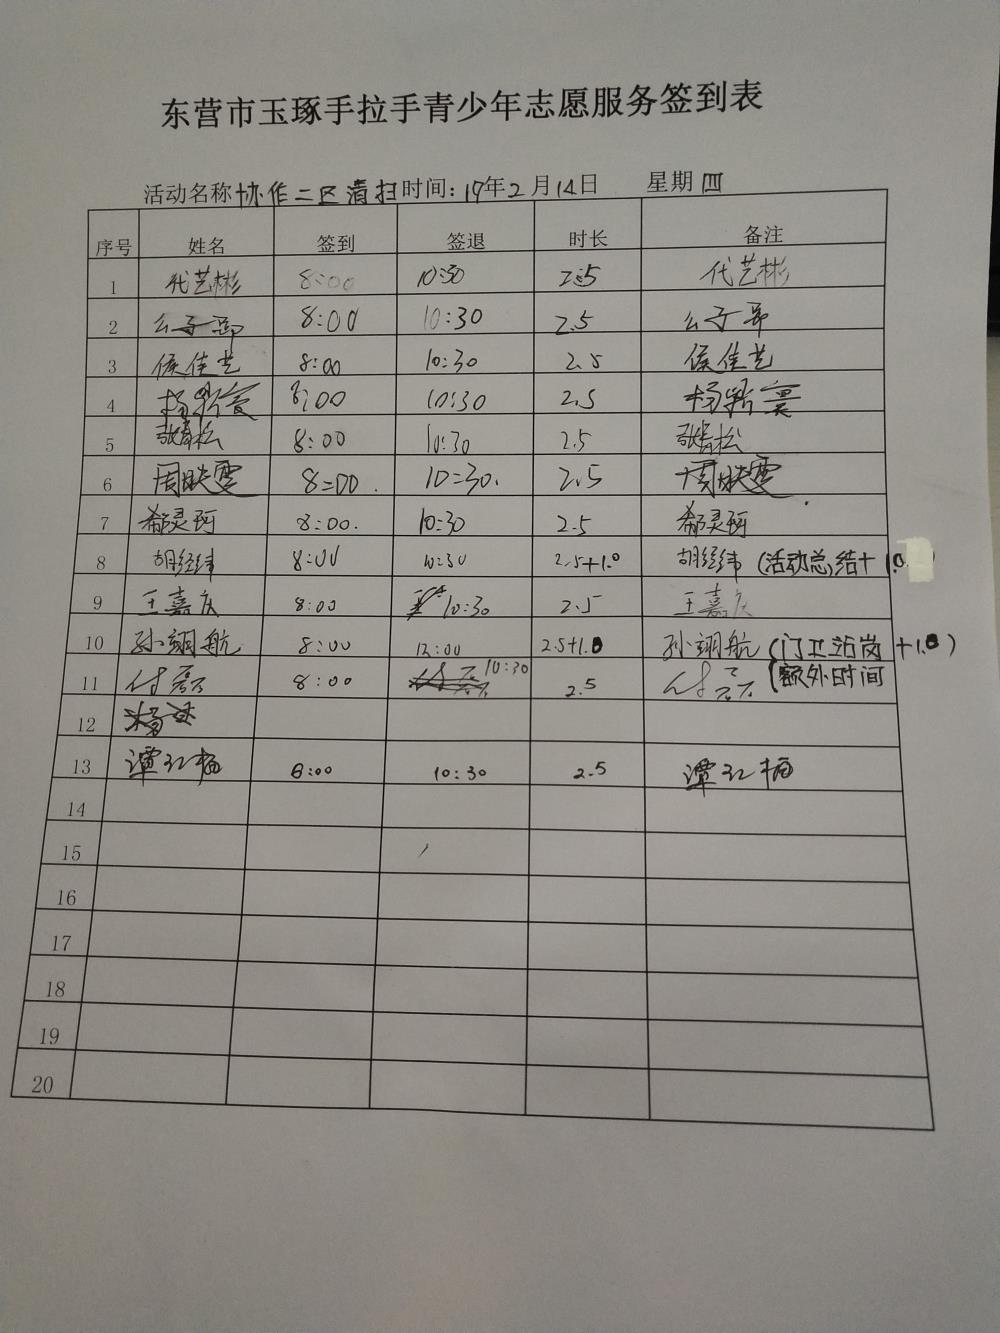 东营市玉琢手拉手青少年志愿服务签到表
活动名称 协作二区清扫 时间: 19年2月14日 星期四
序号 姓名 签到 签退 时长 备注
1 代艺彬 8:00 10:30 2.5 代艺彬
2 8:00 10:30 2.5
3 侯佳艺 8:00 10:30 2.5 侯佳艺
4 8:00 10:30 2.5
5 张春松 8:00 10:30 2.5 张春松
6 周映雯 8:00. 10:30. 2.5 周映雯
7 郗灵珂 8:00. 10:30 2.5 郗灵珂
8 胡经纬 8:00 10:30 2.5+1.0 胡经纬 (活动总结+1.0)
9 王嘉庆 8:00 10:30 2.5 王嘉庆
10 孙翊航 8:00 12:00 2.5+1.0 孙翊航 (门卫站岗+1.0)
11 付磊 8:00 10:30 2.5 付磊 (额外时间
12
13 谭红梅 8:00 10:30 2.5 谭红梅
14
15
16
17
18
19
20